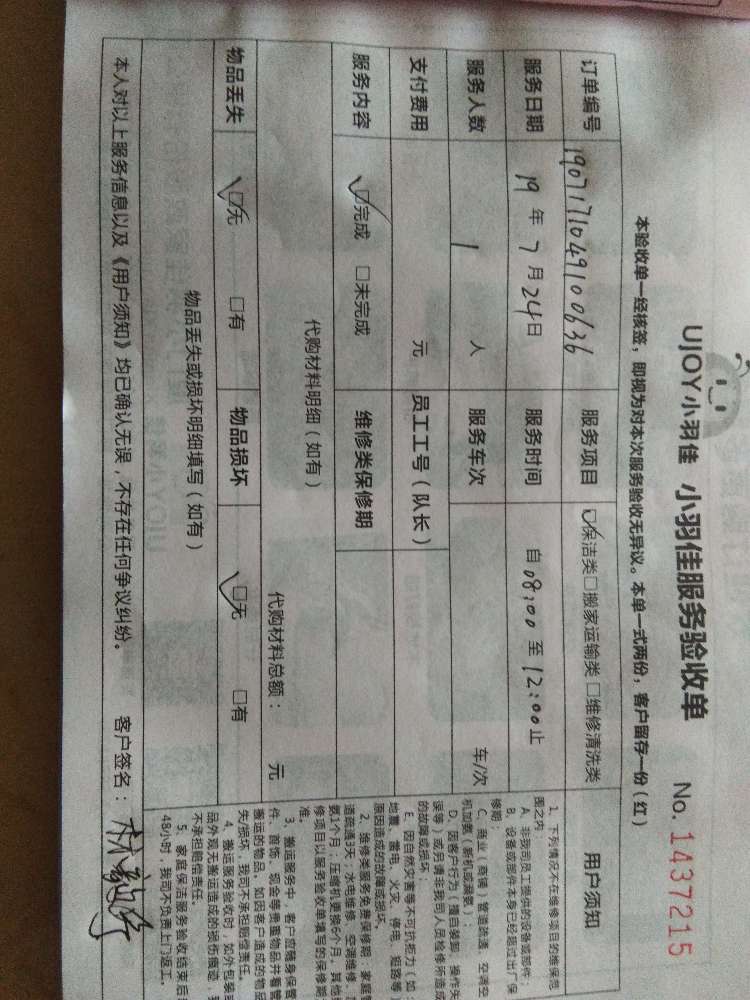 UJOY小羽佳 小羽佳服务验收单 No. 1437215
本验收单一经核签，即视为对本次服务验收无异议。本单一式两份，客户留存一份（红）
订单编号 1907171049100636 服务项目 保洁类 □搬家运输类 □维修清洗类
服务日期 19 年 7 月 24 日 服务时间 自 08:00 至 12:00 止
服务人数 1 人 服务车次 车/次
支付费用 元 员工工号（队长）
服务内容 完成 □未完成 维修类保修期
代购材料明细（如有） 代购材料总额： 元
物品丢失 无 □有 物品损坏 无 □有
物品丢失或损坏明细填写（如有）
本人对以上服务信息以及《用户须知》均已确认无误，不存在任何争议纠纷。 客户签名：
用户须知
1、下列情况不在维修项目的维保范
围之内：
A、非我司员工提供的设备或部件；
B、设备或部件本身已经超过出厂保
修期；
C、商业（商铺）管道疏通、空调空
机加氨（新机或漏氨）；
D、因客户行为（擅自装卸、操作失
误等）或另请非我司人员检修所造成
的故障或损坏；
E、因自然灾害等不可抗权力（如
地震、雷电、火灾、停电、短路等）
原因造成的故障或损坏。
2、维修类服务免费保修期：家庭管
道疏通3天；水电维修、空调维修、
氨个月；压缩机更换6个月，其他
修项目以服务验收单填写的保修期
准。
3、搬运服务中，客户应随身保管
件、首饰、现金等贵重物品并看管
搬运的物品，如因客户造成的物品
失/损坏，我司不承担赔偿责任。
4、搬运服务验收时，如外包装
品外观无搬运造成的损伤痕迹，
不承担赔偿责任。
5、家庭保洁服务验收结束后
48小时，我司不负责上门返工。